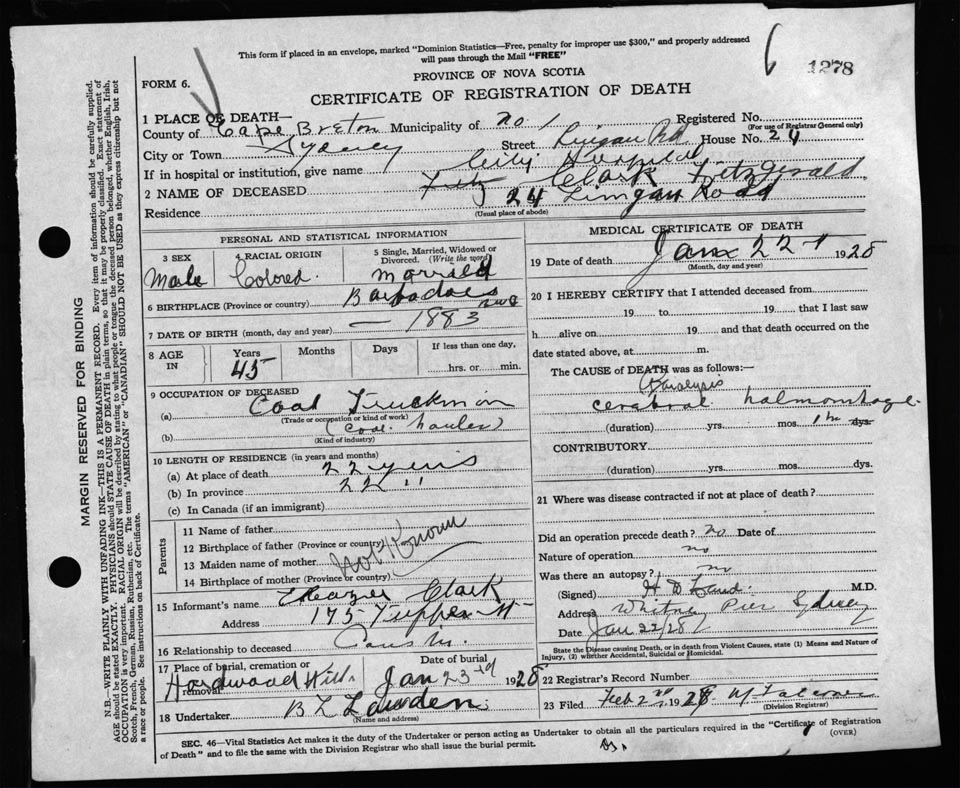 This form if placed in an envelope, marked "Dominion Statistics—Free, penalty for improper use $300," and properly addressed
will pass through the Mail "FREE"
1278
FORM 6.
PROVINCE OF NOVA SCOTIA
CERTIFICATE OF REGISTRATION OF DEATH
1 PLACE OF DEATH—
Registered No.
(For use of Registrar General only)
County of Cape Breton Municipality of No. 1
City or Town Sydney Street Lingan Rd House No. 24
If in hospital or institution, give name City Hospital
2 NAME OF DECEASED Fitz Clark Fitzgerald
Residence 24 Lingan Road
(Usual place of abode)
PERSONAL AND STATISTICAL INFORMATION
3 SEX
Male
4 RACIAL ORIGIN
Colored
5 Single, Married, Widowed or
Divorced. (Write the word)
Married
6 BIRTHPLACE (Province or country) Barbadoes
7 DATE OF BIRTH (month, day and year) — 1883
8 AGE
IN
Years
45
Months
Days
If less than one day,
hrs. or min.
9 OCCUPATION OF DECEASED
(a) Coal Truckman
(Trade or occupation or kind of work)
(b) (Coal hauler)
(Kind of industry)
10 LENGTH OF RESIDENCE (in years and months)
(a) At place of death 22 years
(b) In province 22 "
(c) In Canada (if an immigrant)
Parents
11 Name of father
12 Birthplace of father (Province or country)
13 Maiden name of mother
14 Birthplace of mother (Province or country)
Not Known
15 Informant's name Eleazer Clark
Address 175 Tupper St
16 Relationship to deceased Cousin
17 Place of burial, cremation or
removal
Hardwood Hill
Date of burial
Jan 23rd 1928
18 Undertaker B L Lowden
(Name and address)
MEDICAL CERTIFICATE OF DEATH
19 Date of death Jan 22 1928
(Month, day and year)
20 I HEREBY CERTIFY that I attended deceased from
19 to 19 that I last saw
h alive on 19 and that death occurred on the
date stated above, at m.
The CAUSE of DEATH was as follows:—
Paralysis
cerebral halmorrhage
(duration) yrs. mos. 1 hr dys.
CONTRIBUTORY
(duration) yrs. mos. dys.
21 Where was disease contracted if not at place of death?
Did an operation precede death? no Date of
Nature of operation no
Was there an autopsy? no
(Signed) M.D.
Address Whitney Pier Sydney
Date Jan 22/28
State the Disease causing Death, or in death from Violent Causes, state (1) Means and Nature of
Injury, (2) whether Accidental, Suicidal or Homicidal.
22 Registrar's Record Number
23 Filed Feb 2nd 1928
(Division Registrar)
SEC. 46—Vital Statistics Act makes it the duty of the Undertaker or person acting as Undertaker to obtain all the particulars required in the "Certificate of Registration
of Death" and to file the same with the Division Registrar who shall issue the burial permit.
(OVER)
MARGIN RESERVED FOR BINDING
N.B.—WRITE PLAINLY WITH UNFADING INK—THIS IS A PERMANENT RECORD. Every item of information should be carefully supplied.
AGE should be stated EXACTLY. PHYSICIANS should STATE CAUSE OF DEATH in plain terms, so that it may be properly classified. Exact statement of
OCCUPATION is very important. RACIAL ORIGIN will be described by stating to what people or tongue the deceased person belonged, whether English, Irish,
Scotch, French, German, Russian, Ruthenian, etc. The terms "AMERICAN" or "CANADIAN" SHOULD NOT BE USED as they express citizenship but not
a race or people. See instructions on back of Certificate.